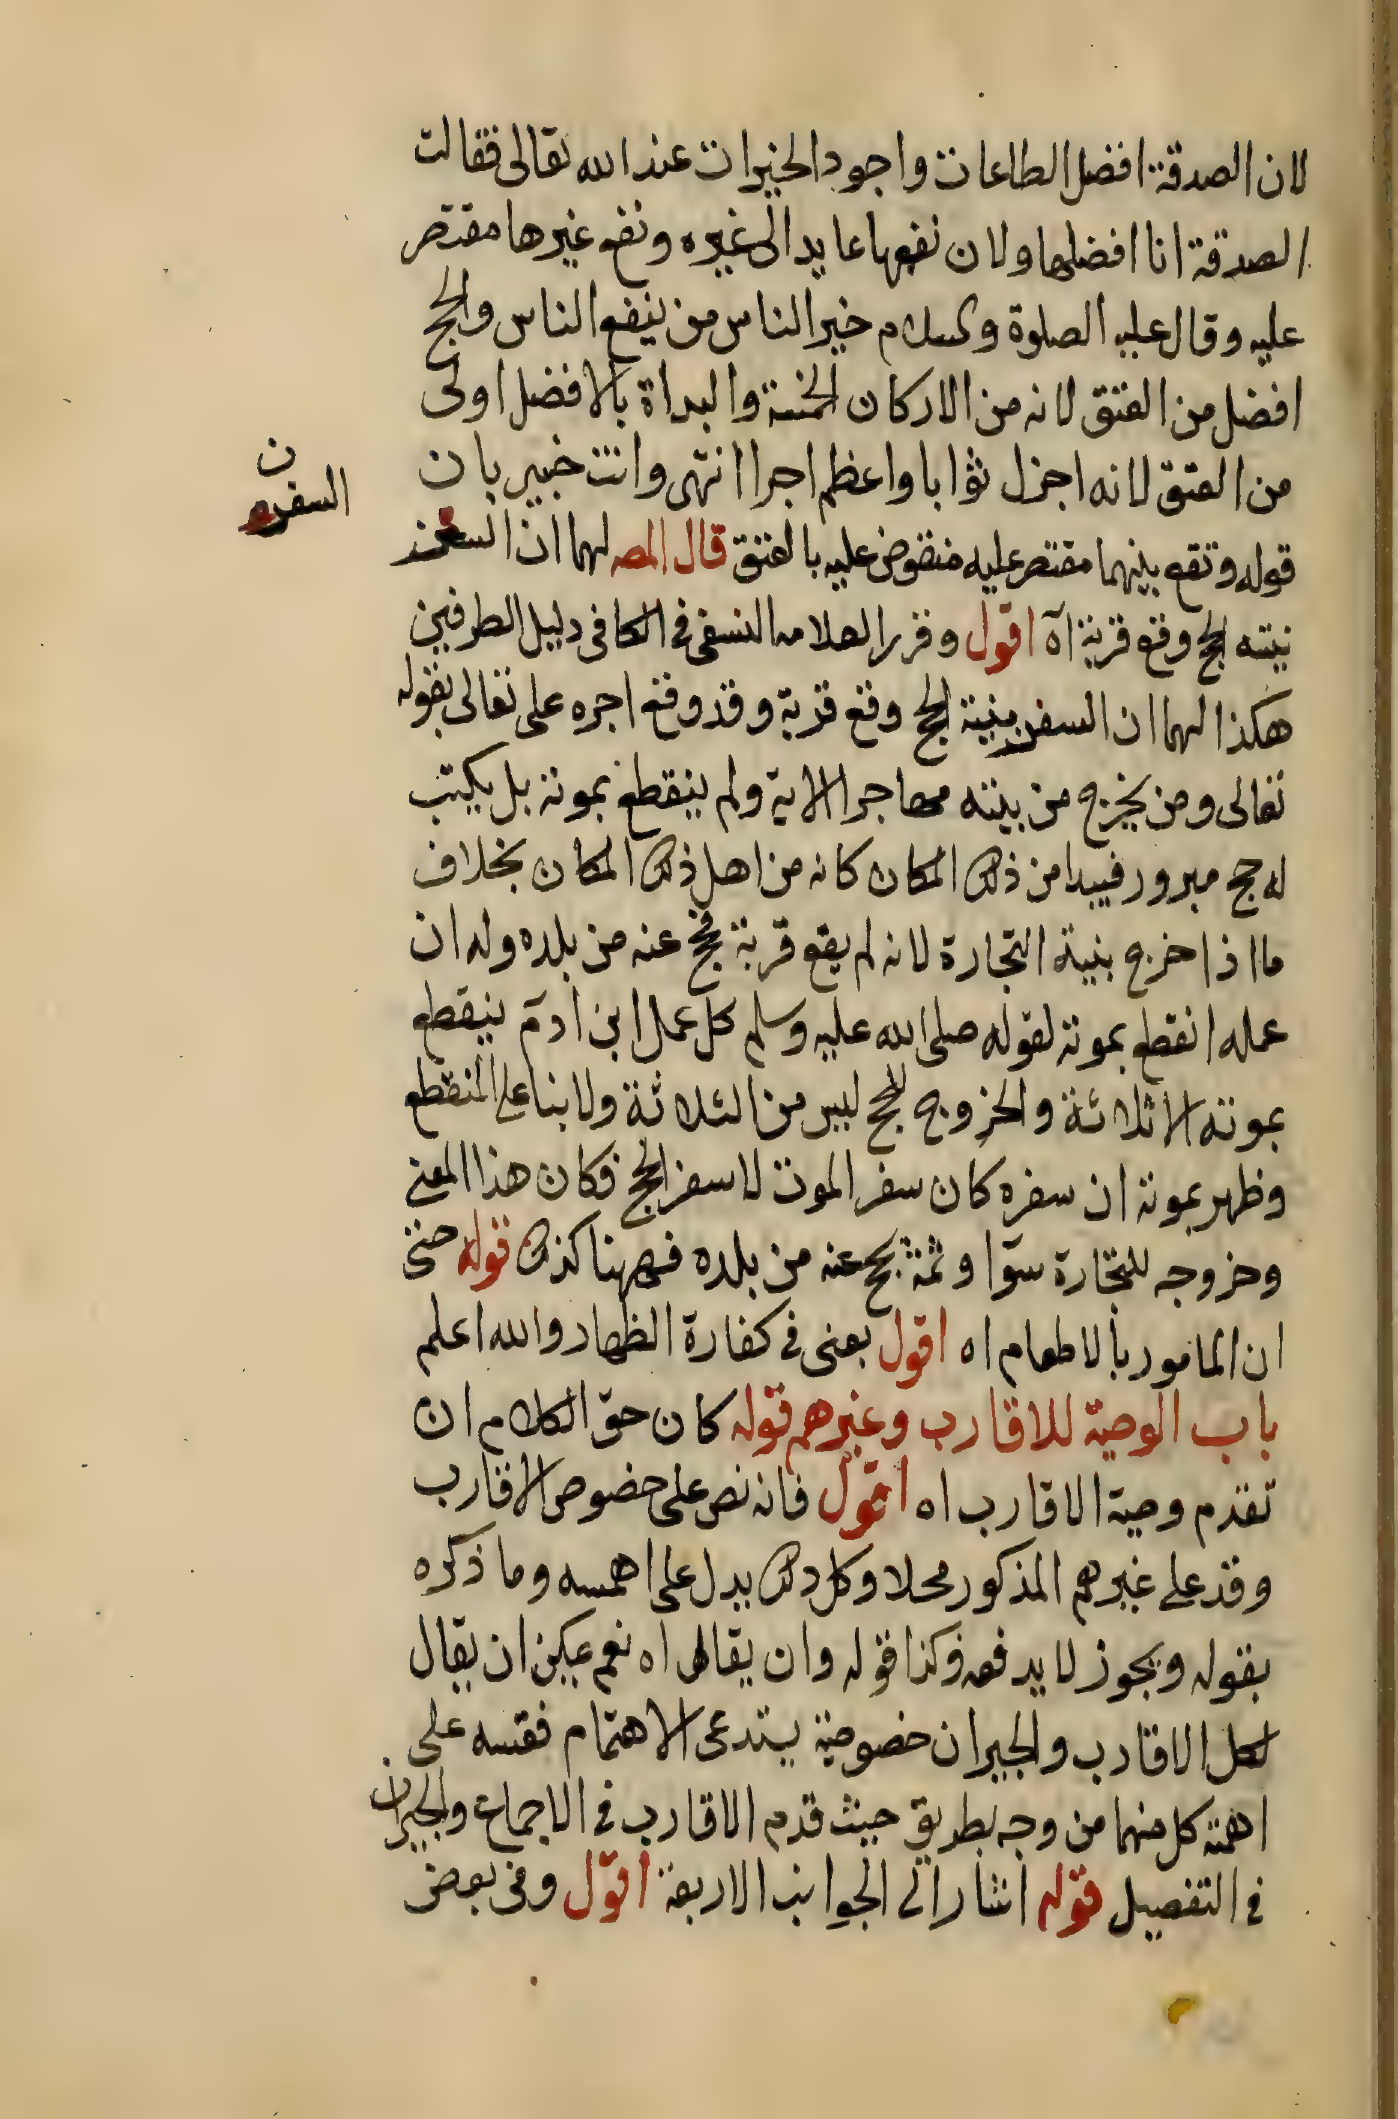 لان الصدقة افضل الطاعات واجود الخيرات عند الله تعالى فقالت
الصدقة انا افضلها ولان نفعها عايد الى غيره ونفع غيرها مقتصر
عليه وقال عليه الصلوة والسلام خير الناس من ينفع الناس والحج
افضل من العتق لانه من الاركان الخمسة والبداة بالافضل اولى
من العتق لانه اجزل ثوابا واعظم اجرا انتهى وانت خبير بان
قوله ونفع بينهما مقتصر عليه منقوض عليه بالعتق قال المصه لهما ان السفر
ن
السفر
نيته الحج وقع قربة اه اقول وقرر العلامه النسفى في الكافى دليل الطرفين
هكذا لهما ان السفر بنية الحج وقع قربة وقد وقع اجره على تعالى بقوله
تعالى ومن يخرج من بيته مهاجرا الاية ولم ينقطع بموته بل يكتب
له حج مبرور فيبدا من ذلك المكان كانه من اهل ذلك المكان بخلاف
ما اذا خرج بنية التجارة لانه لم يقع قربة فحج عنه من بلده وله ان
عمله انقطع بموته لقوله صلى الله عليه وسلم كل عمل ابن ادم ينقطع
بموته الا ثلاثة والخروج للحج ليس من الثلاثة ولا بنا على المنقطع
وظهر بموته ان سفره كان سفر الموت لا سفر الحج فكان هذا المعنى
وخروجه للتجارة سوآ وثمة يحج عنه من بلده فههنا كذلك قوله حتى
ان المامور بالاطعام اه اقول يعنى في كفارة الظهار والله اعلم
باب الوصية للاقارب وغيرهم قوله كان حق الكلام ان
تقدم وصية الاقارب اه اقول فانه نص على خصوص الاقارب
وقد على غيرهم المذكور محلا وكل ذلك يدل على اهمسه وما ذكره
بقوله ويجوز لا يدفعه وكذا قوله وان يقال اه نعم يمكن ان يقال
لكل الاقارب والجيران خصوصية يستدعى الاهتمام فقسه على
اهمية كل منهما من وجه بطريق حيث قدم الاقارب في الاجماع والجيران
في التفصيل قوله اشار الى الجوانب الاربعة اقول وفى بعض